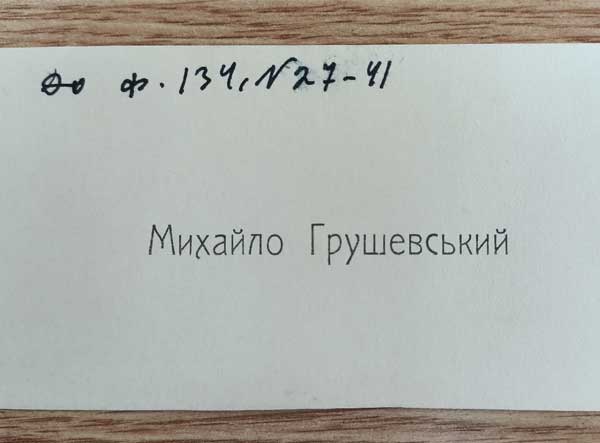 До ф. 134, N 27-41
Михайло Грушевський